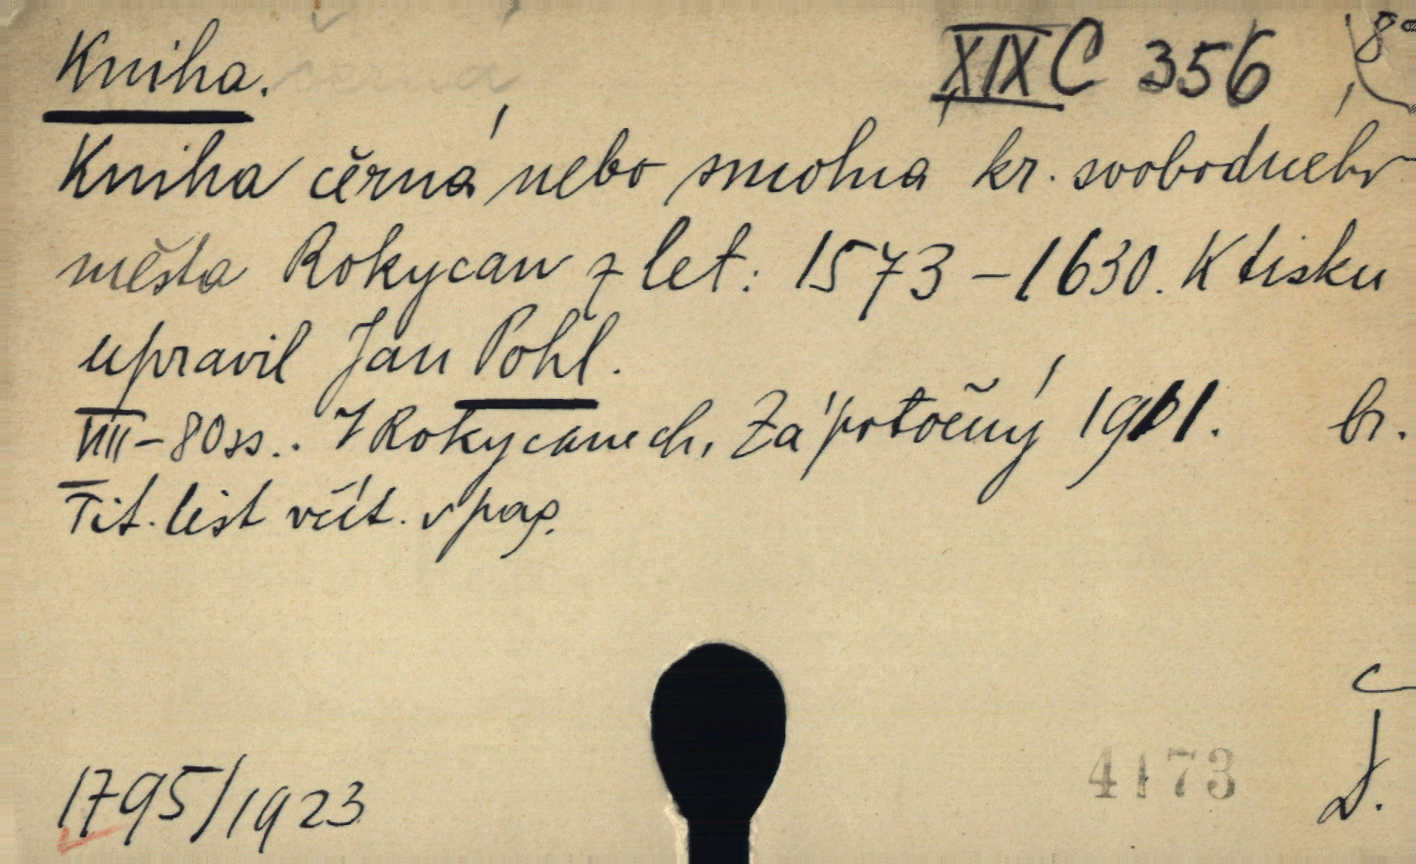 Kniha. černá XIX C 356 8°
Kniha černá nebo smolná kr. svobodného
města Rokycan z let: 1573-1630. K tisku
upravil Jan Pohl.
VIII-80ss.. V Rokycanech, Zápotočný 1911. br.
Tit. list včít. v pag.
C
1795/1923 4173 D.